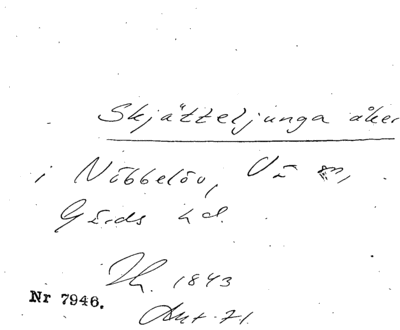 Skjätteljunga åker
i Nöbbelöv, Vä sn,
Gärds hd.
Th. 1843
Nr 7946.
Ant. 71.